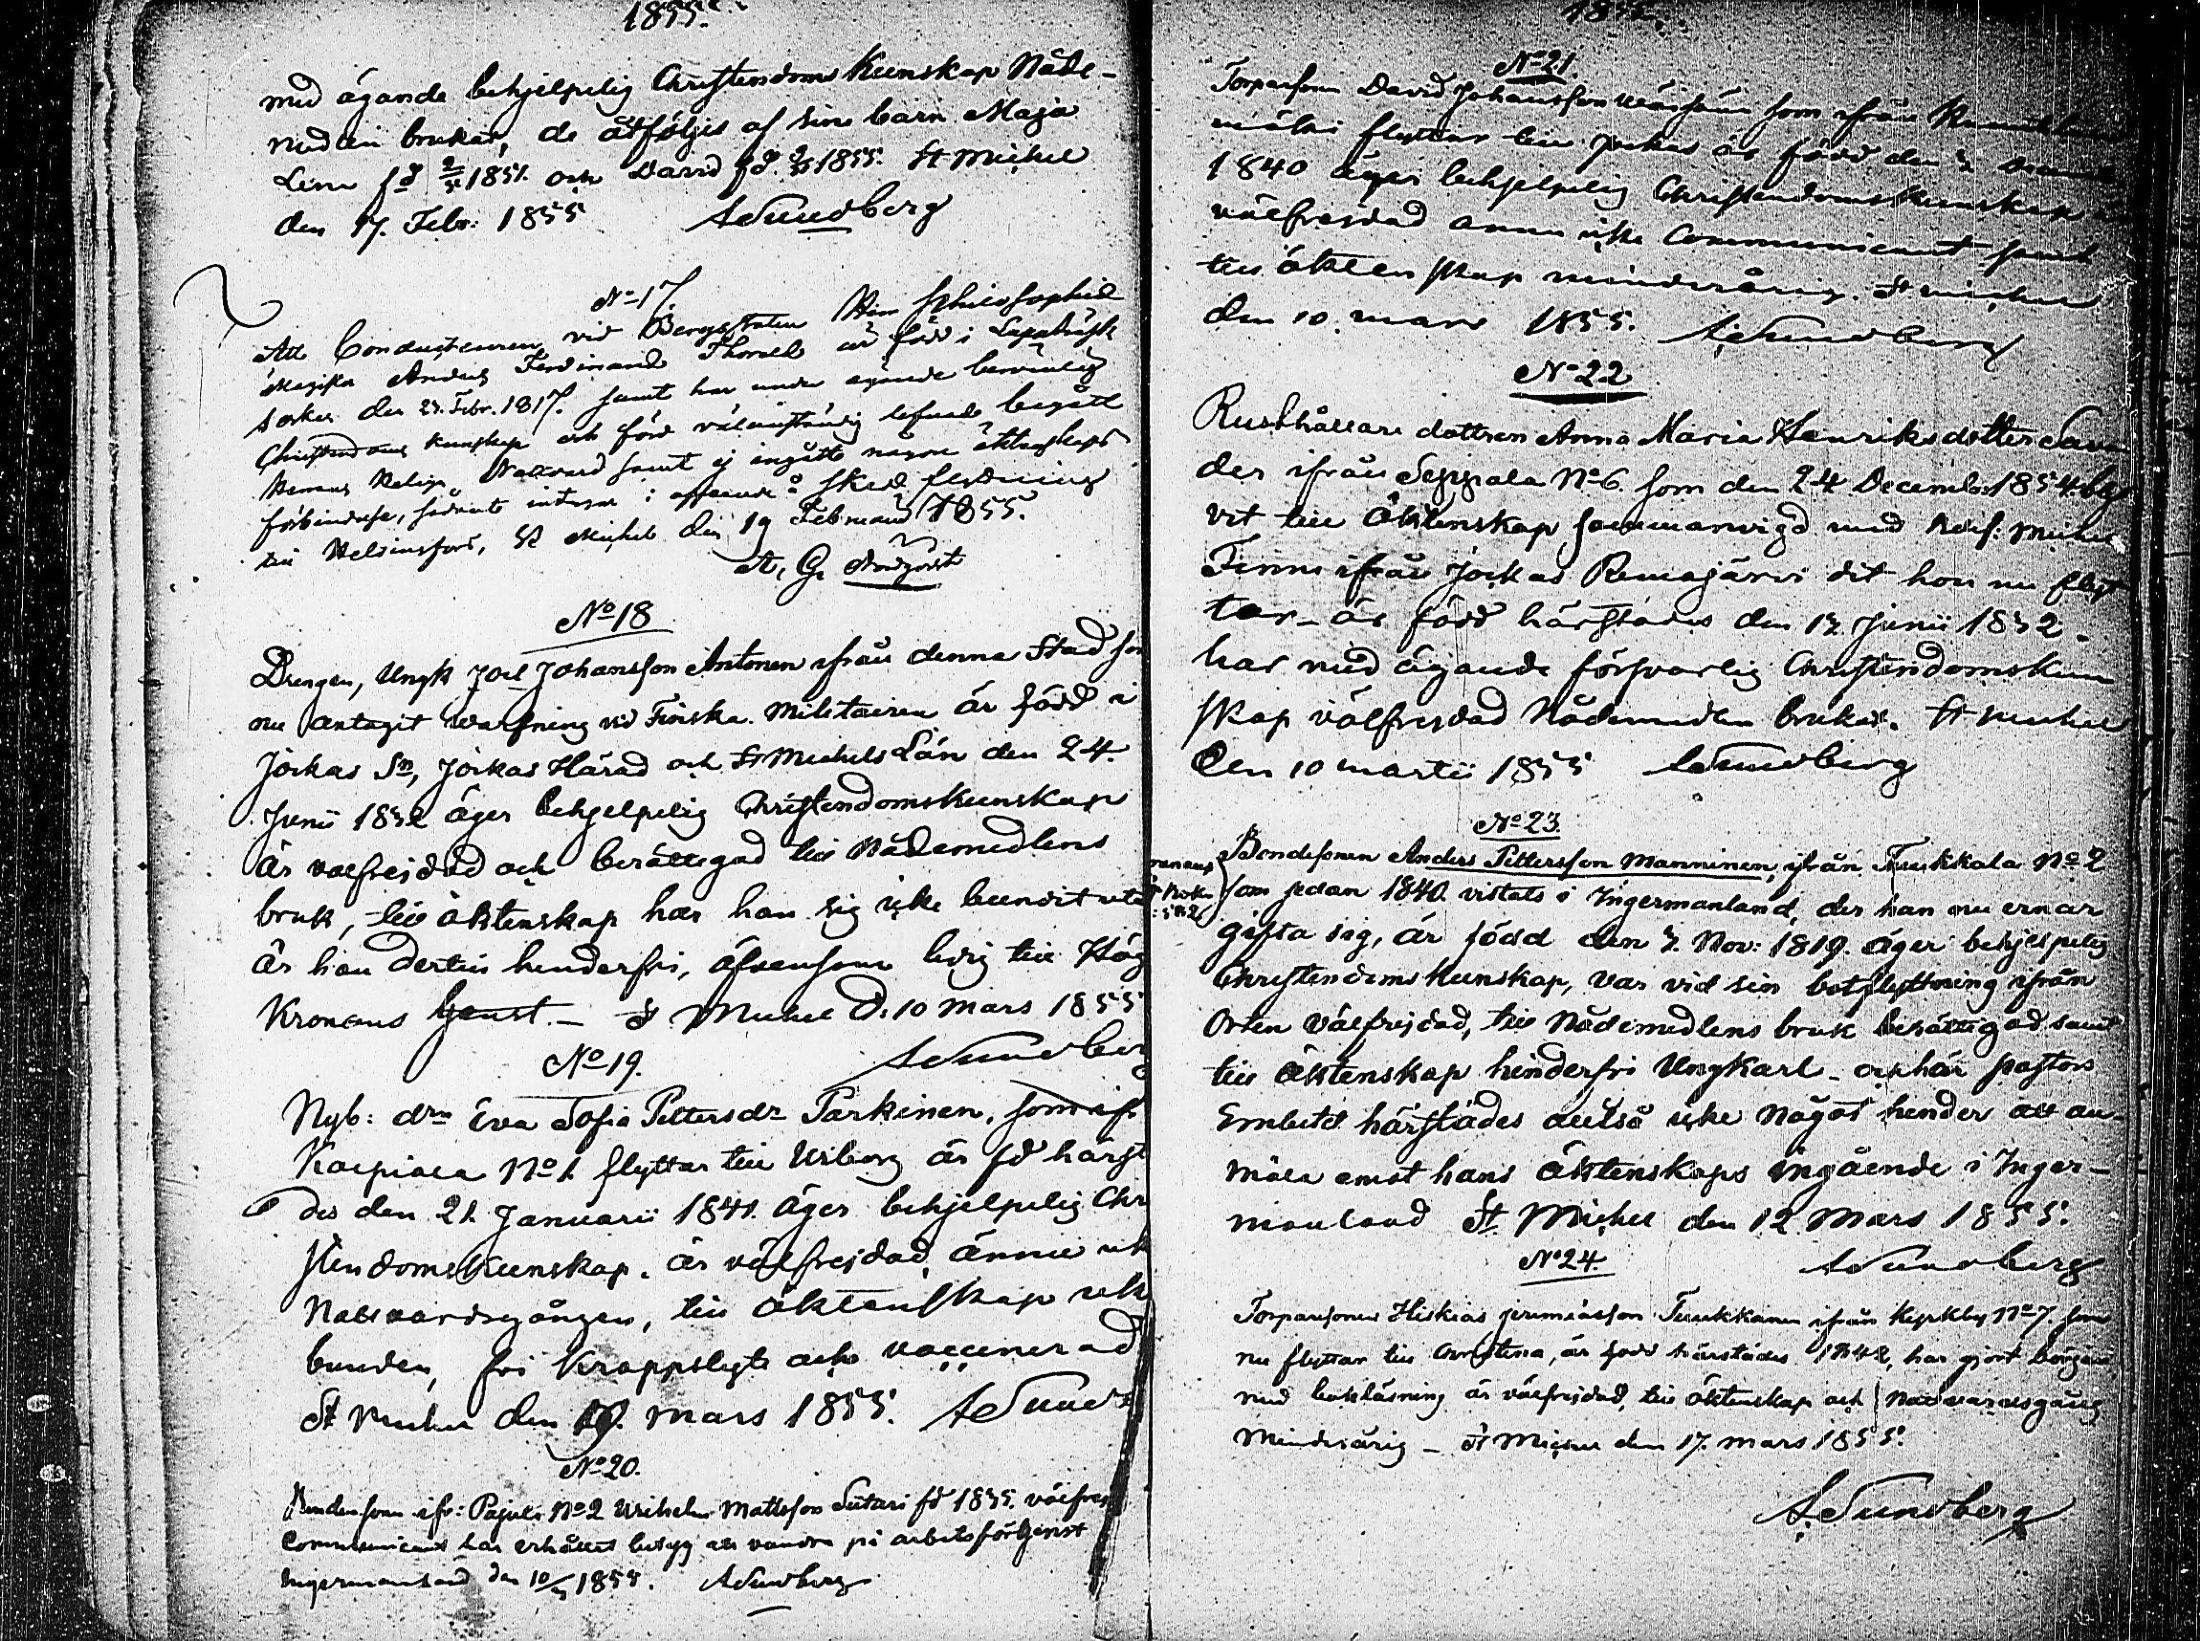 1855.
med ägande behjelpelig Christendoms Kunskap Nåde-
medlen brukat, de åtföljes af sine barn Maja
Lena fd 1851. och David fd. 1855. St Michel
den 17. Febr. 1855 ASundberg
No 17.
Att Conducteuren vid Bergsstaten Herr Philosophiæ
Magister Anders Ferdinand Thoreld är född i
socken den 23. Febr. 1817. samt har under ägande
Christendoms Kunskap och förd välanständig lefnad begått
Herrans Heliga Nattvard samt ej ingått någon äktenskaps
förbindelse, sådant intygar i afseende å sked flyttning
till Helsingfors, St Michel den 19 Februarii 1855.
A. G.
No 18
Drengen, Ungk Joel Johansson Antonen ifrån denna Stad som
nu antagit warfning vid Finska Militairen är född i
Jockas Sn, Jockas Härad och St Michels Län den 24.
Junii 1832 äger behjelpelig Christendomskunskap
är välfrejdad och berättigad till Nådemedlens
bruk, till äktenskap har han sig icke bundit utan
är han dertill hinderfri, äfvensom ledig till Höga
Kronans tjenst. – St Michel d. 10 Mars 1855
ASundberg
No 19.
Nyb: drn Eva Sofia Pettersdr Parkinen, som ifr
Karpiala No 1. flyttar till Wiborg är fd härst
des den 21. Januarii 1841. äger behjelpelig Chr
stendomskunskap, är välfrejdad, ännu ick
Nattvardsgången, till äktenskap icke
bunden, fri kroppslyte och vaccinerad
St Michel den 10. Mars 1855. ASundb
No 20.
Bondesonen ifr: Pajula No 2 Wilhelm Mattsson Siitari fd 1835. välfrejd
Communicant har erhållit betyg att vandra på arbetsförtjenst
Ingermanland den 10/3 1855. ASundberg
1855.
No 21.
Torparsonen David Johansson som ifrån
flyttar till Jockas är född den
1840 äger behjelpelig Christendomskunskap
välfrejdad ännu icke Communicant samt
till äktenskap minderårig. St Michel
den 10 mars 1855. ASundberg
No 22
Rusthållare dottren Anna Maria Henriksdotter Savan
der ifrån Seppälä No 6. som den 24 December 1854 blif
vit till äktenskap sammanvigd med Michel
Finni ifrån Jockas Remojärvi dit hon nu flyt
tar – är född härstädes den 17. Junii 1832.
har med ägande försvarlig Christendomskun
skap välfrejdad Nådemedlen brukat. St Michel
Den 10 martii 1855 ASundberg
No 23.
Bondesonen Anders Pettersson Manninen, ifrån Tuukkala No 2
som sedan 1840 vistats i Ingermanland, der han nu ernar
gifta sig, är född den 7. Nov: 1819. äger behjelpelig
Christendoms kunskap, var vid sin bortflyttning ifrån
Orten välfrejdad, till Nådemedlens bruk berättigad samt
till äktenskap hinderfri Ungkarl – och här pastors
Embetet härstädes altså icke något hinder att an-
mäla emot hans äktenskaps ingående i Inger-
manland St. Michel den 12 Mars 1855.
ASundberg
No 24.
Torparesonen Hiskias Jeremiasson Tuukkanen ifrån Kyrkby No 7. som
nu flyttar till Christina, är född härstädes 1842, har gjort början
med bokläsning är välfrejdad, till äktenskap och Nattvardsgång
Minderårig – St Michel den 17. mars 1855.
ASundberg